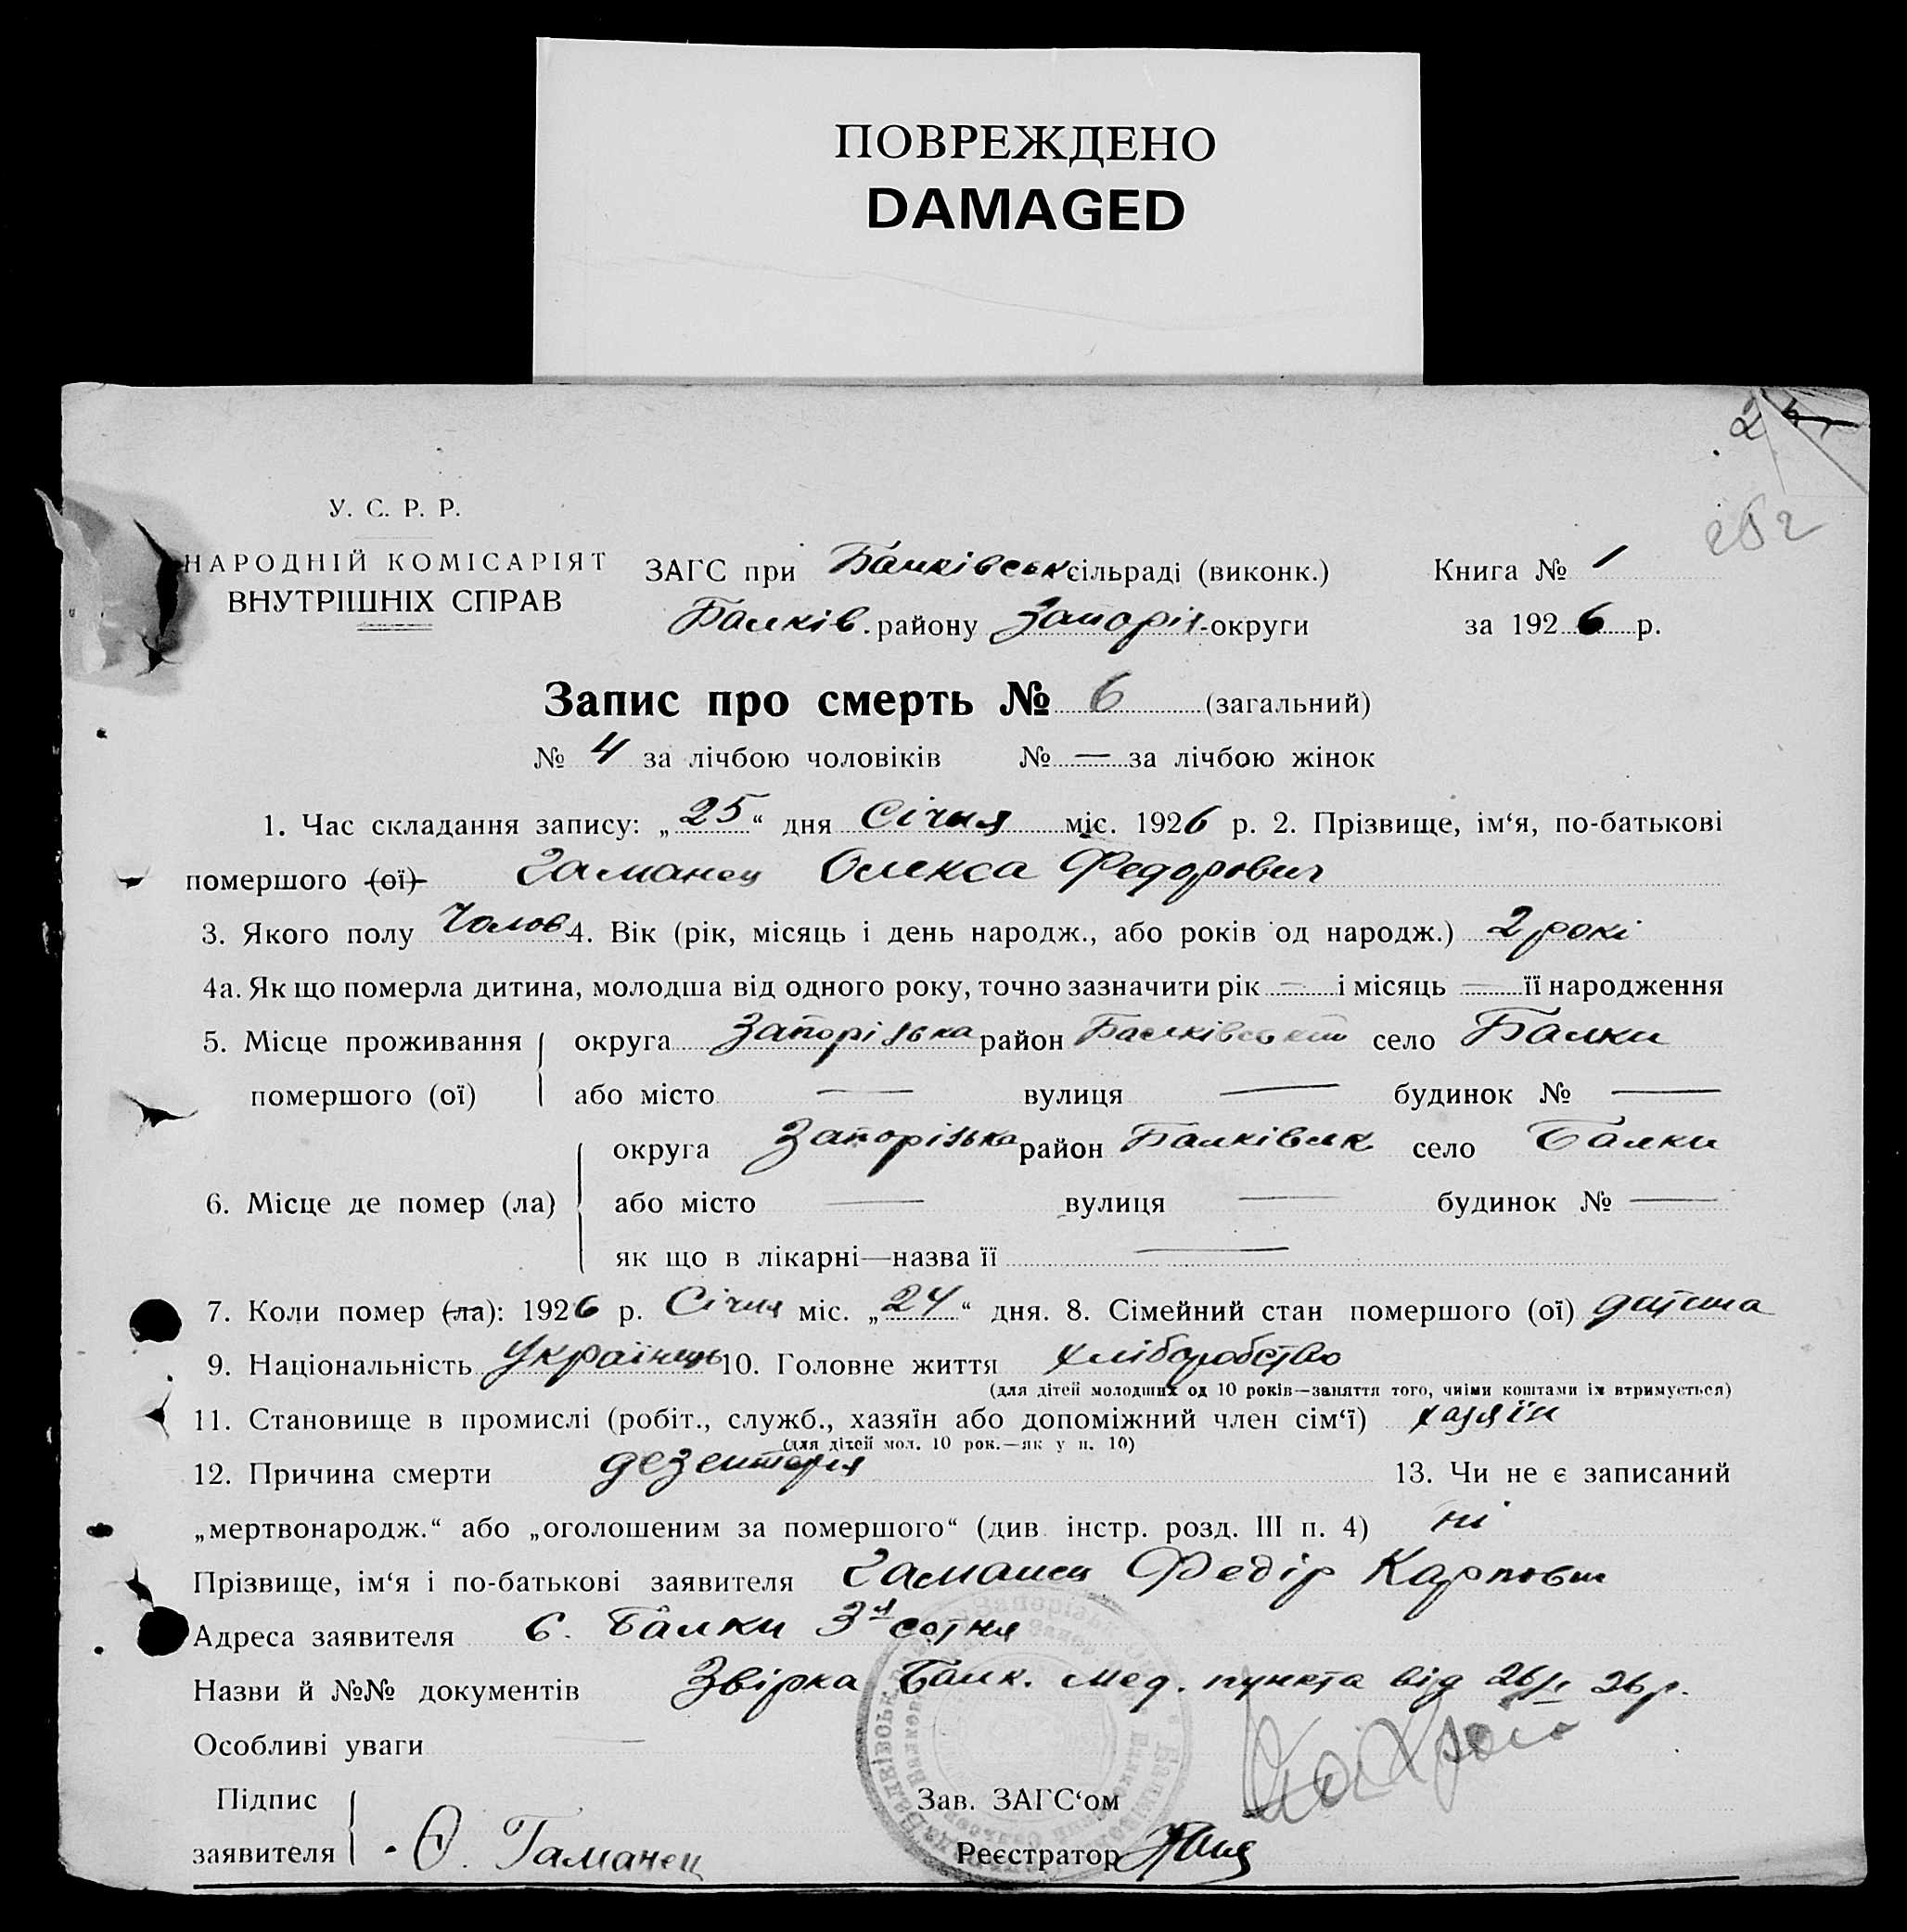 ПОВРЕЖДЕНО
DAMAGED
2
252
У. С. Р. Р.
НАРОДНІЙ КОМІСАРІЯТ
ВНУТРІШНІХ СПРАВ
ЗАГС при Балківськ сільраді (виконк.)
Балків. району Запоріз-округи
Книга № 1
за 1926 р.
Запис про смерть № 6 (загальний)
№ 4 за лічбою чоловіків № — за лічбою жінок
1. Час складання запису: „25“ дня Січня міс. 1926 р. 2. Прізвище, ім‘я, по-батькові
помершого (ої) Гаманец Олекса Федорович
3. Якого полу Чолов 4. Вік (рік, місяць і день народж., або років од народж.) 2 рокі
4а. Як що померла дитина, молодша від одного року, точно зазначити рік — і місяць — її народження
5. Місце проживання помершого (ої) округа Запорізька район Балківський село Балки
або місто — вулиця — будинок № —
6. Місце де помер (ла) округа Запорізька район Балківськ село Балки
або місто — вулиця — будинок № —
як що в лікарні—назва її —
7. Коли помер (ла): 1926 р. Січня міс. „24“ дня. 8. Сімейний стан помершого (ої) дитина
9. Національність Українець 10. Головне життя хліборобство
(для дітей молодших од 10 років—заняття того, чиїми коштами їх втримується)
11. Становище в промислі (робіт., служб., хазяїн або допоміжний член сім‘ї) хазяїн
(для дітей мол. 10 рок.—як у п. 10)
12. Причина смерти дезентерія 13. Чи не є записаний
„мертвонародж.“ або „оголошеним за помершого“ (див. інстр. розд. III п. 4) ні
Прізвище, ім‘я і по-батькові заявителя Гаманец Федір Карпович
Адреса заявителя С. Балки 3я сотня
Назви й №№ документів Звірка Балк. Мед. пункта від 26/I 26 р.
Особливі уваги —
Підпис заявителя Ф. Гаманец
Зав. ЗАГС‘ом
Реєстратор